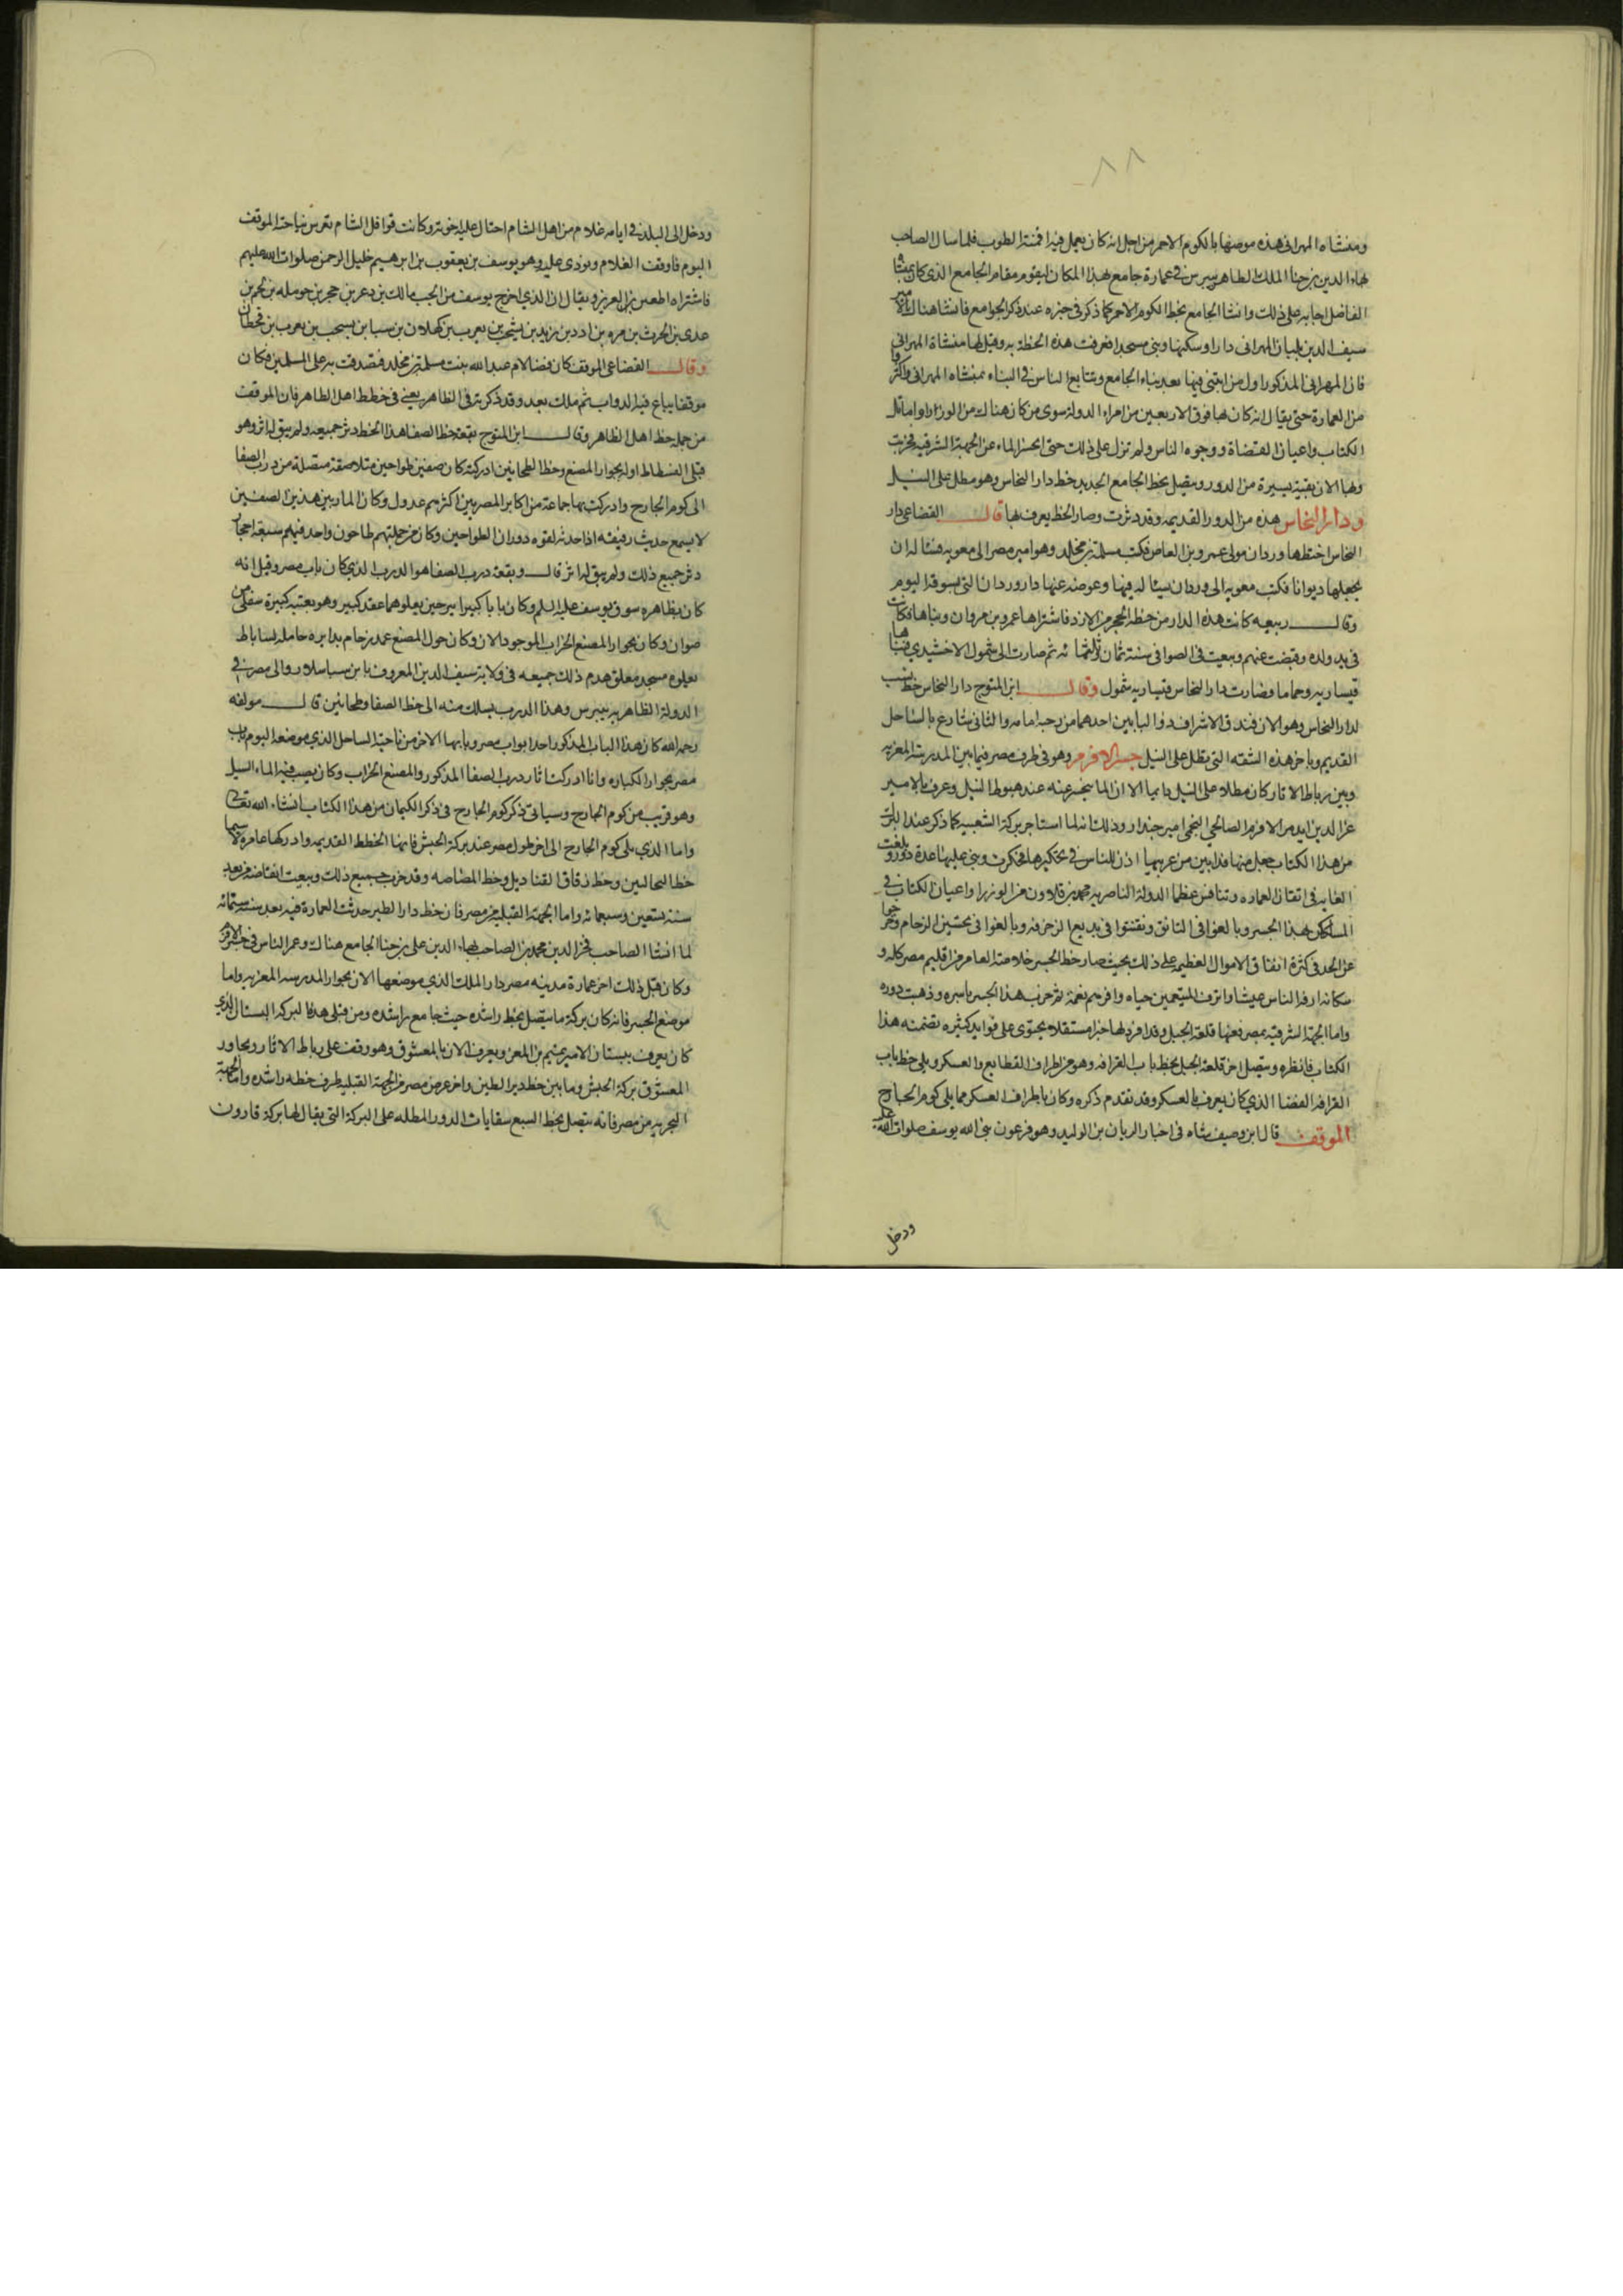 ٨٨
ومنشاه المهرانى هذه موضعها بالكوم الاحمر من اجل انه كان يعمل فيه اقمنة الطوب فلما سال الصاحب
بهاء الدين بن حنا الملك الظاهر بيبرس فى عمارة جامع بهذا المكان ليقوم مقام الجامع الذى كان بمنشاة
الفاضل اجابه على ذلك وانشا الجامع بخط الكوم الاحمر كما ذكر فى خبره عند ذكر الجوامع فانشا هناك الامير
سيف الدين بلبان المهرانى دارا وسكنها وبنى مسجدا فعرفت هذه الخطة به وقيل لها منشاة المهرانى
فان المهرانى المذكور اول من ابتنى فيها بعد بناء الجامع وتتابع الناس فى البناء بمنشاه المهرانى واكثروا
من العمارة حتى يقال انه كان بها فوق الاربعين من امراء الدولة سوى من كان هناك من الوزراء واماثل
الكتاب واعيان القضاة ووجوه الناس ولم تزل على ذلك حتى انحسر الماء عن الجهة الشرقيه فخربت
وبها الان بقية يسيرة من الدور ويتصل بخط الجامع الجديد خط دار النحاس وهو مطل على النيل
ودار النحاس هذه من الدور القديمه وقد دثرت وصار الخط يعرف بها قال القضاعى دار
النحاس اختطها وردان مولى عمرو بن العاص فكتب مسلمة بن مخلد وهو امير مصر الى معويه فساله ان
يجعلها ديوانا فكتب معويه الى وردان يساله فيها وعوضه عنها دار وردان التى بسوقه اليوم
وقال ربيعه كانت هذه الدار من خطة الحجر من الازد فاشتراها عمرو بن مروان وبناها فكانت
فى يد ولده وقبضت عنهم وبيعت فى الصوافى سنة ثمان وثلثمائه ثم صارت الى شمول الاخشيدى فبناها
قيساريه وحماما فصارت دار النحاس قيساريه شمول وقال ابن المتوج دار النحاس خط نسب
لدار النحاس وهو الان فندق الاشراف ذو البابين احدهما من رحبه امامه والثانى شارع بالساحل
القديم وباخر هذه الشقه التى تطل على النيل جسر الافرم وهو فى طرف مصر فيما بين المدرسة المعزيه
وبين رباط الاثار كان مطلا على النيل دايما الا ان الماء ينحسر عنه عند هبوط النيل وعرف بالامير
عز الدين ايدمر الافرم الصالحى النجمى امير جندار وذلك انه لما استاجر بركة الشعيبيه كما ذكر عند البرك
من هذا الكتاب جعل منها فدانين من غربيها اذن للناس فى تحكيرها فحكرت وبنى عليها عدة دور وبلغت
الغايه فى اتقان العماره وتنافس عظما الدولة الناصريه محمد بن قلاون من الوزرا واعيان الكتاب فى
المساكن بهذا الجسر وبالغوا فى التانق وتفننوا فى بديع الزخرفه وبالغوا فى تحسين الرخام وخرجوا
عن الحد فى كثرة انفاق الاموال العظيمه على ذلك بحيث صار خط الجسر خلاصة العامر من اقليم مصر كله و
سكانه ارفه الناس عيشا واترف المتنعمين حياه وافرهم نعمة ثم خرب هذا الجسر باسره وذهبت دوره
واما الجهة الشرقيه بمصر ففيها قلعة الجبل وقد افرد لها خبر مستقلا يحتوى على فوايد كثيره تضمنه هذا
الكتاب فانظره ويتصل اخر قلعة الجبل بخط باب القرافه وهو من اطراف القطايع والعسكر ويلى خط باب
القرافه الفضا الذى كان يعرف بالعسكر وقد تقدم ذكره وكان باطراف العسكر مما يلى كوم الجارح
الموقف قال ابن وصيف شاه فى اخبار الريان بن الوليد وهو فرعون نبى الله يوسف صلوات الله عليه
ودخل
ودخل الى البلد فى ايامه غلام من اهل الشام احتال عليه اخوته وكانت قوافل الشام تعرس بناحية الموقف
اليوم فاوقف الغلام ونودى عليه وهو يوسف بن يعقوب بن ابرهيم خليل الرحمن صلوات الله عليهم
فاشتراه اطعين بن العزيز ويقال ان الذى اخرج يوسف من الجب مالك بن دعر بن حجر بن
عدى بن الحرث بن مره بن ادد بن زيد بن يشجب بن يعرب بن كهلان بن سبا بن يشجب بن يعرب بن قحطان
وقال القضاعى الموقف كان فضا لام عبد الله بنت مسلمة بن مخلد فتصدقت به على المسلمين فكان
موقفا يباع فيه الدواب ثم ملك بعد وقد ذكرته فى الظاهر يعنى فى خطط اهل الظاهر فان الموقف
من جملة خط اهل الظاهر وقال ابن المتوج بقعة خط الصفا هذا الخط دثر جميعه ولم يبق له اثر وهو
قبلى الفسطاط اوله بجوار المصنع وخط الطحانين ادركته كان صفين طواحين متلاصقة متصلة من درب الصفا
الى كوم الجارح وادركت بها جماعة من اكابر المصريين اكثرهم عدول وكان المار بين هذين الصفين
لا يسمع حديث رفيقه اذا حدثه لقوه دوران الطواحين وكان من جملتهم طاحون واحد فيهم سبعة احجار
دثر جميع ذلك ولم يبق له اثر قال وبقعة درب الصفا هو الدرب الذى كان باب مصر وقيل انه
كان بظاهره سوق يوسف عليه السلم وكان بابا كبيرا ببرجين يعلوهما عقد كبير وهو بعتبه كبيرة سفلى من
صوان وكان بجوار المصنع الخراب الموجود الان وكان حول المصنع عمد رخام بدايره حاملة لساباط
يعلوه مسجد معلق هدم ذلك جميعه فى ولاية سيف الدين المعروف بابن سلار والى مصر فى
الدولة الظاهريه بيبرس وهذا الدرب يسلك منه الى خط الصفا وطحانين قال مولفه
رحمه الله كان هذا الباب المذكور احد ابواب مصر وبابها الاخر من ناحية الساحل الذى موضعه اليوم باب
مصر بجوار الكباره وانا ادركت اثار درب الصفا المذكور والمصنع الخراب وكان يصب فيه الماء للسبيل
وهو قريب من كوم الجارح وسياتى ذكر كوم الجارح فى ذكر الكيمان من هذا الكتاب ان شاء الله تعالى
واما الذى يلى كوم الجارح الى اخر طول مصر عند بركة الحبش فانها الخطط القديمه وادركتها عامره لاسيما
خط النخالين وخط زقاق القناديل وخط المصاصه وقد خرب جميع ذلك وبيعت انقاضه من بعد
سنة تسعين وسبعمائه واما الجهة القبلية من مصر فان خط دار الطير حدثت العمارة فيه بعد سنة ستمائه
لما انشا الصاحب فخر الدين محمد بن الصاحب بهاء الدين على بن حنا الجامع هناك وعمر الناس فى جسر الافرم
وكان قبل ذلك اخر عمارة مدينه مصر دار الملك الذى موضعها الان بجوار المدرسه المعزيه واما
موضع الجسر فانه كان بركة ما يتصل بخط راشده حيث جامع راشده ومن قبلى هذه البركة البستان الذى
كان يعرف ببستان الامير تميم بن المعز ويعرف الان بالمعشوق وهو وقف على رباط الاثار ويجاور
المعشوق بركة الحبش وما بين خط دير الطين واخر عرض مصر من الجهة القبليه طرف خطه راشده واما الجهة
البحريه من مصر فانه يتصل بخط السبع سقايات الدور المطله على البركة التى يقال لها بركة قارون